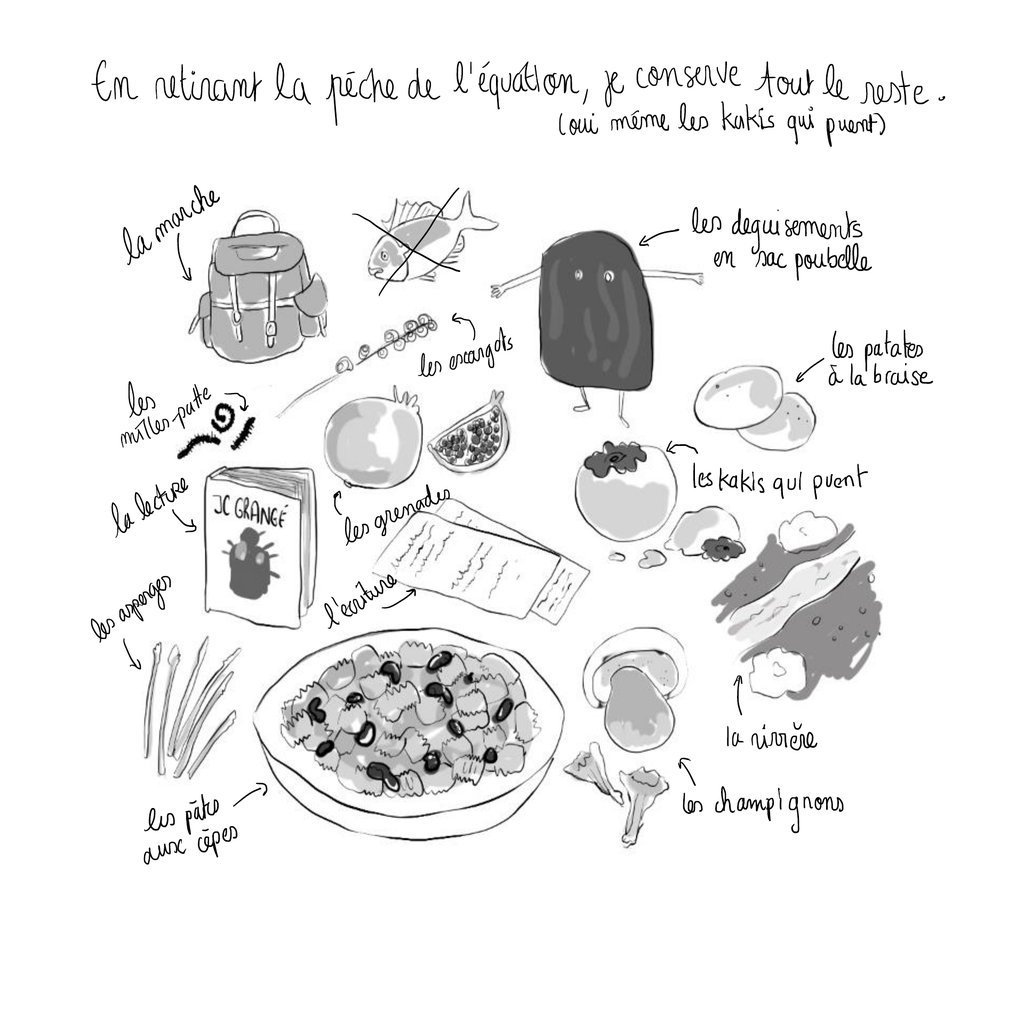 En retirant la pêche de l'équation, je conserve tout le reste.
(oui même les kakis qui puent)
la marche
les deguisements
en sac poubelle
les escargots
les patates
à la braise
les
milles-patte
les kakis qui puent
la lecture
JC GRANGÉ
les grenades
l'écriture
les asperges
la rivière
les champignons
les pâtes
aux cèpes